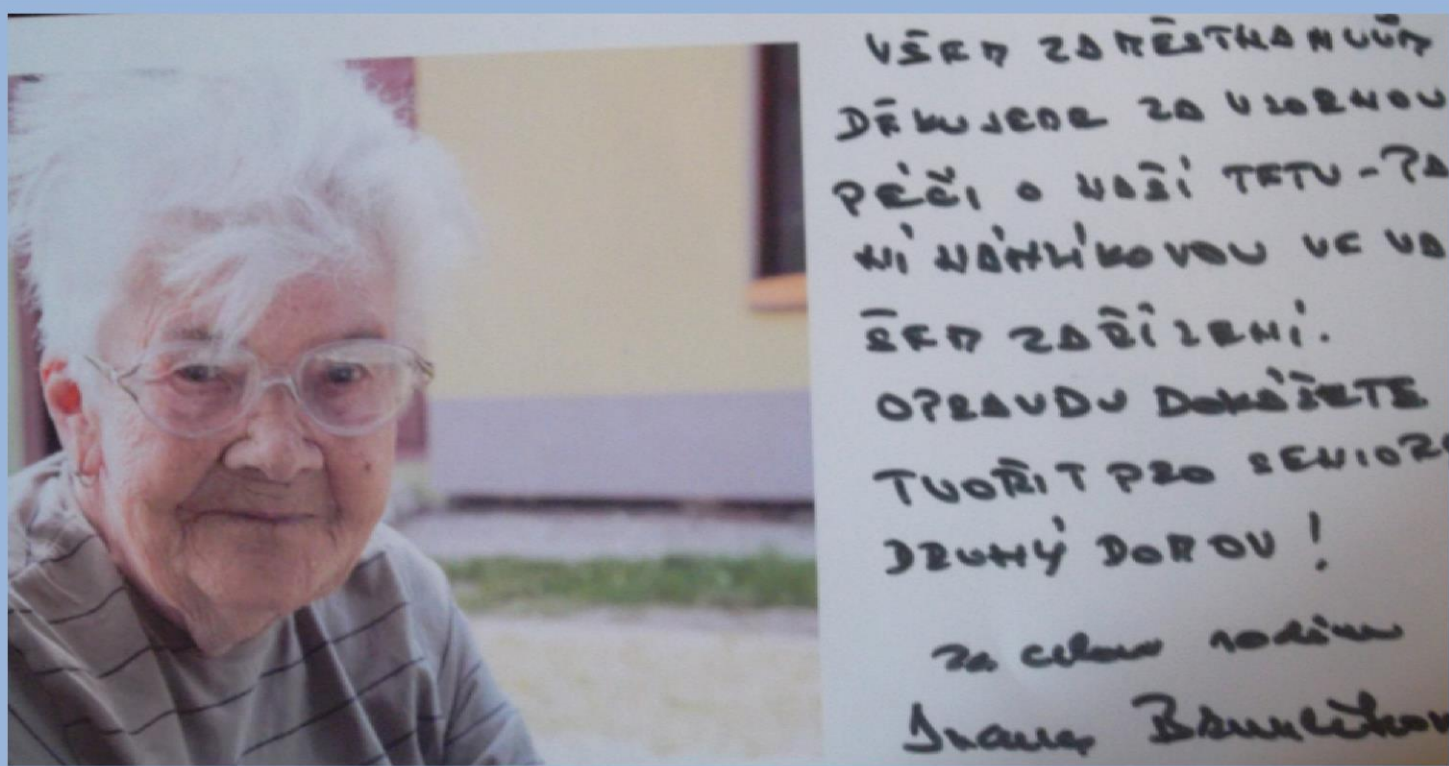 VŠEM ZAMĚSTNANCŮM
DĚKUJEME ZA VZORNOU
PÉČI O NAŠÍ TETU - PA
NÍ 
VE VA
ŠEM ZAŘÍZENÍ.
OPRAVDU DOKÁŽETE
TVOŘIT PRO SENIORY
DRUHÝ DOMOV!
za celou rodinu
Ivana